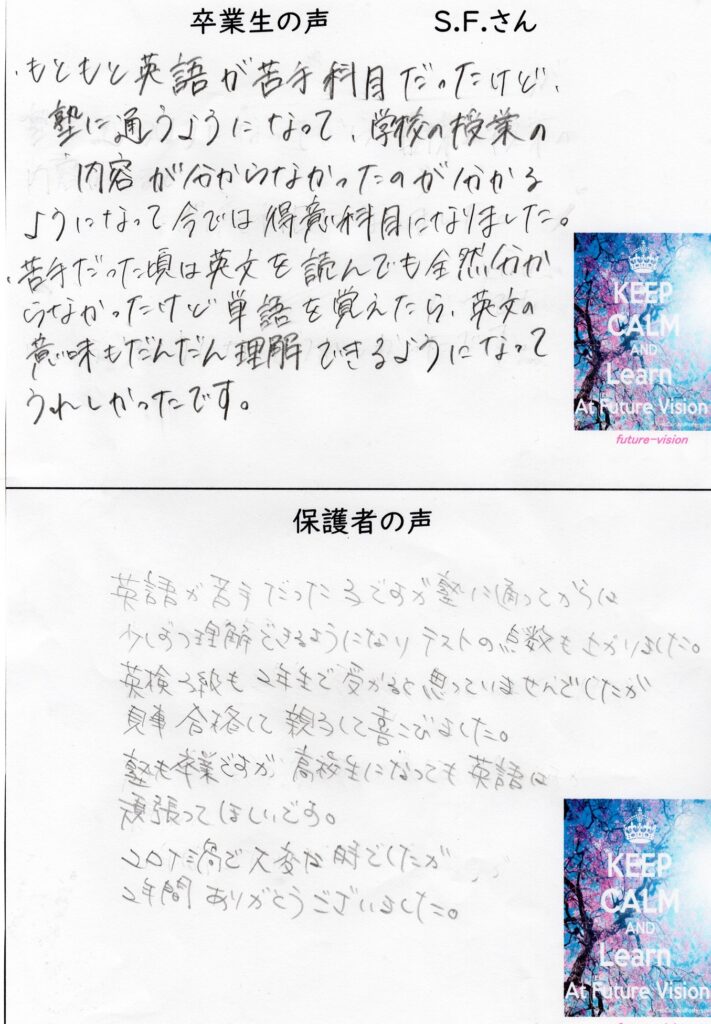 卒業生の声 S.F.さん
・もともと英語が苦手科目だったけど、
塾に通うようになって、学校の授業の
内容が分からなかったのが分かる
ようになって今では得意科目になりました。
・苦手だった頃は英文を読んでも全然分か
らなかったけど単語を覚えたら、英文の
意味もだんだん理解できるようになって
うれしかったです。
KEEP
CALM
AND
Learn
At Future Vision
future-vision
保護者の声
英語が苦手だった子ですが塾に通ってからは
少しずつ理解できるようになりテストの点数も上がりました。
英検3級も2年生で受かると思っていませんでしたが
見事合格して親子して喜こびました。
塾も卒業ですが、高校生になっても英語は
頑張ってほしいです。
コロナ禍で大変な時でしたが
2年間ありがとうございました。
KEEP
CALM
AND
Learn
At Future Vision